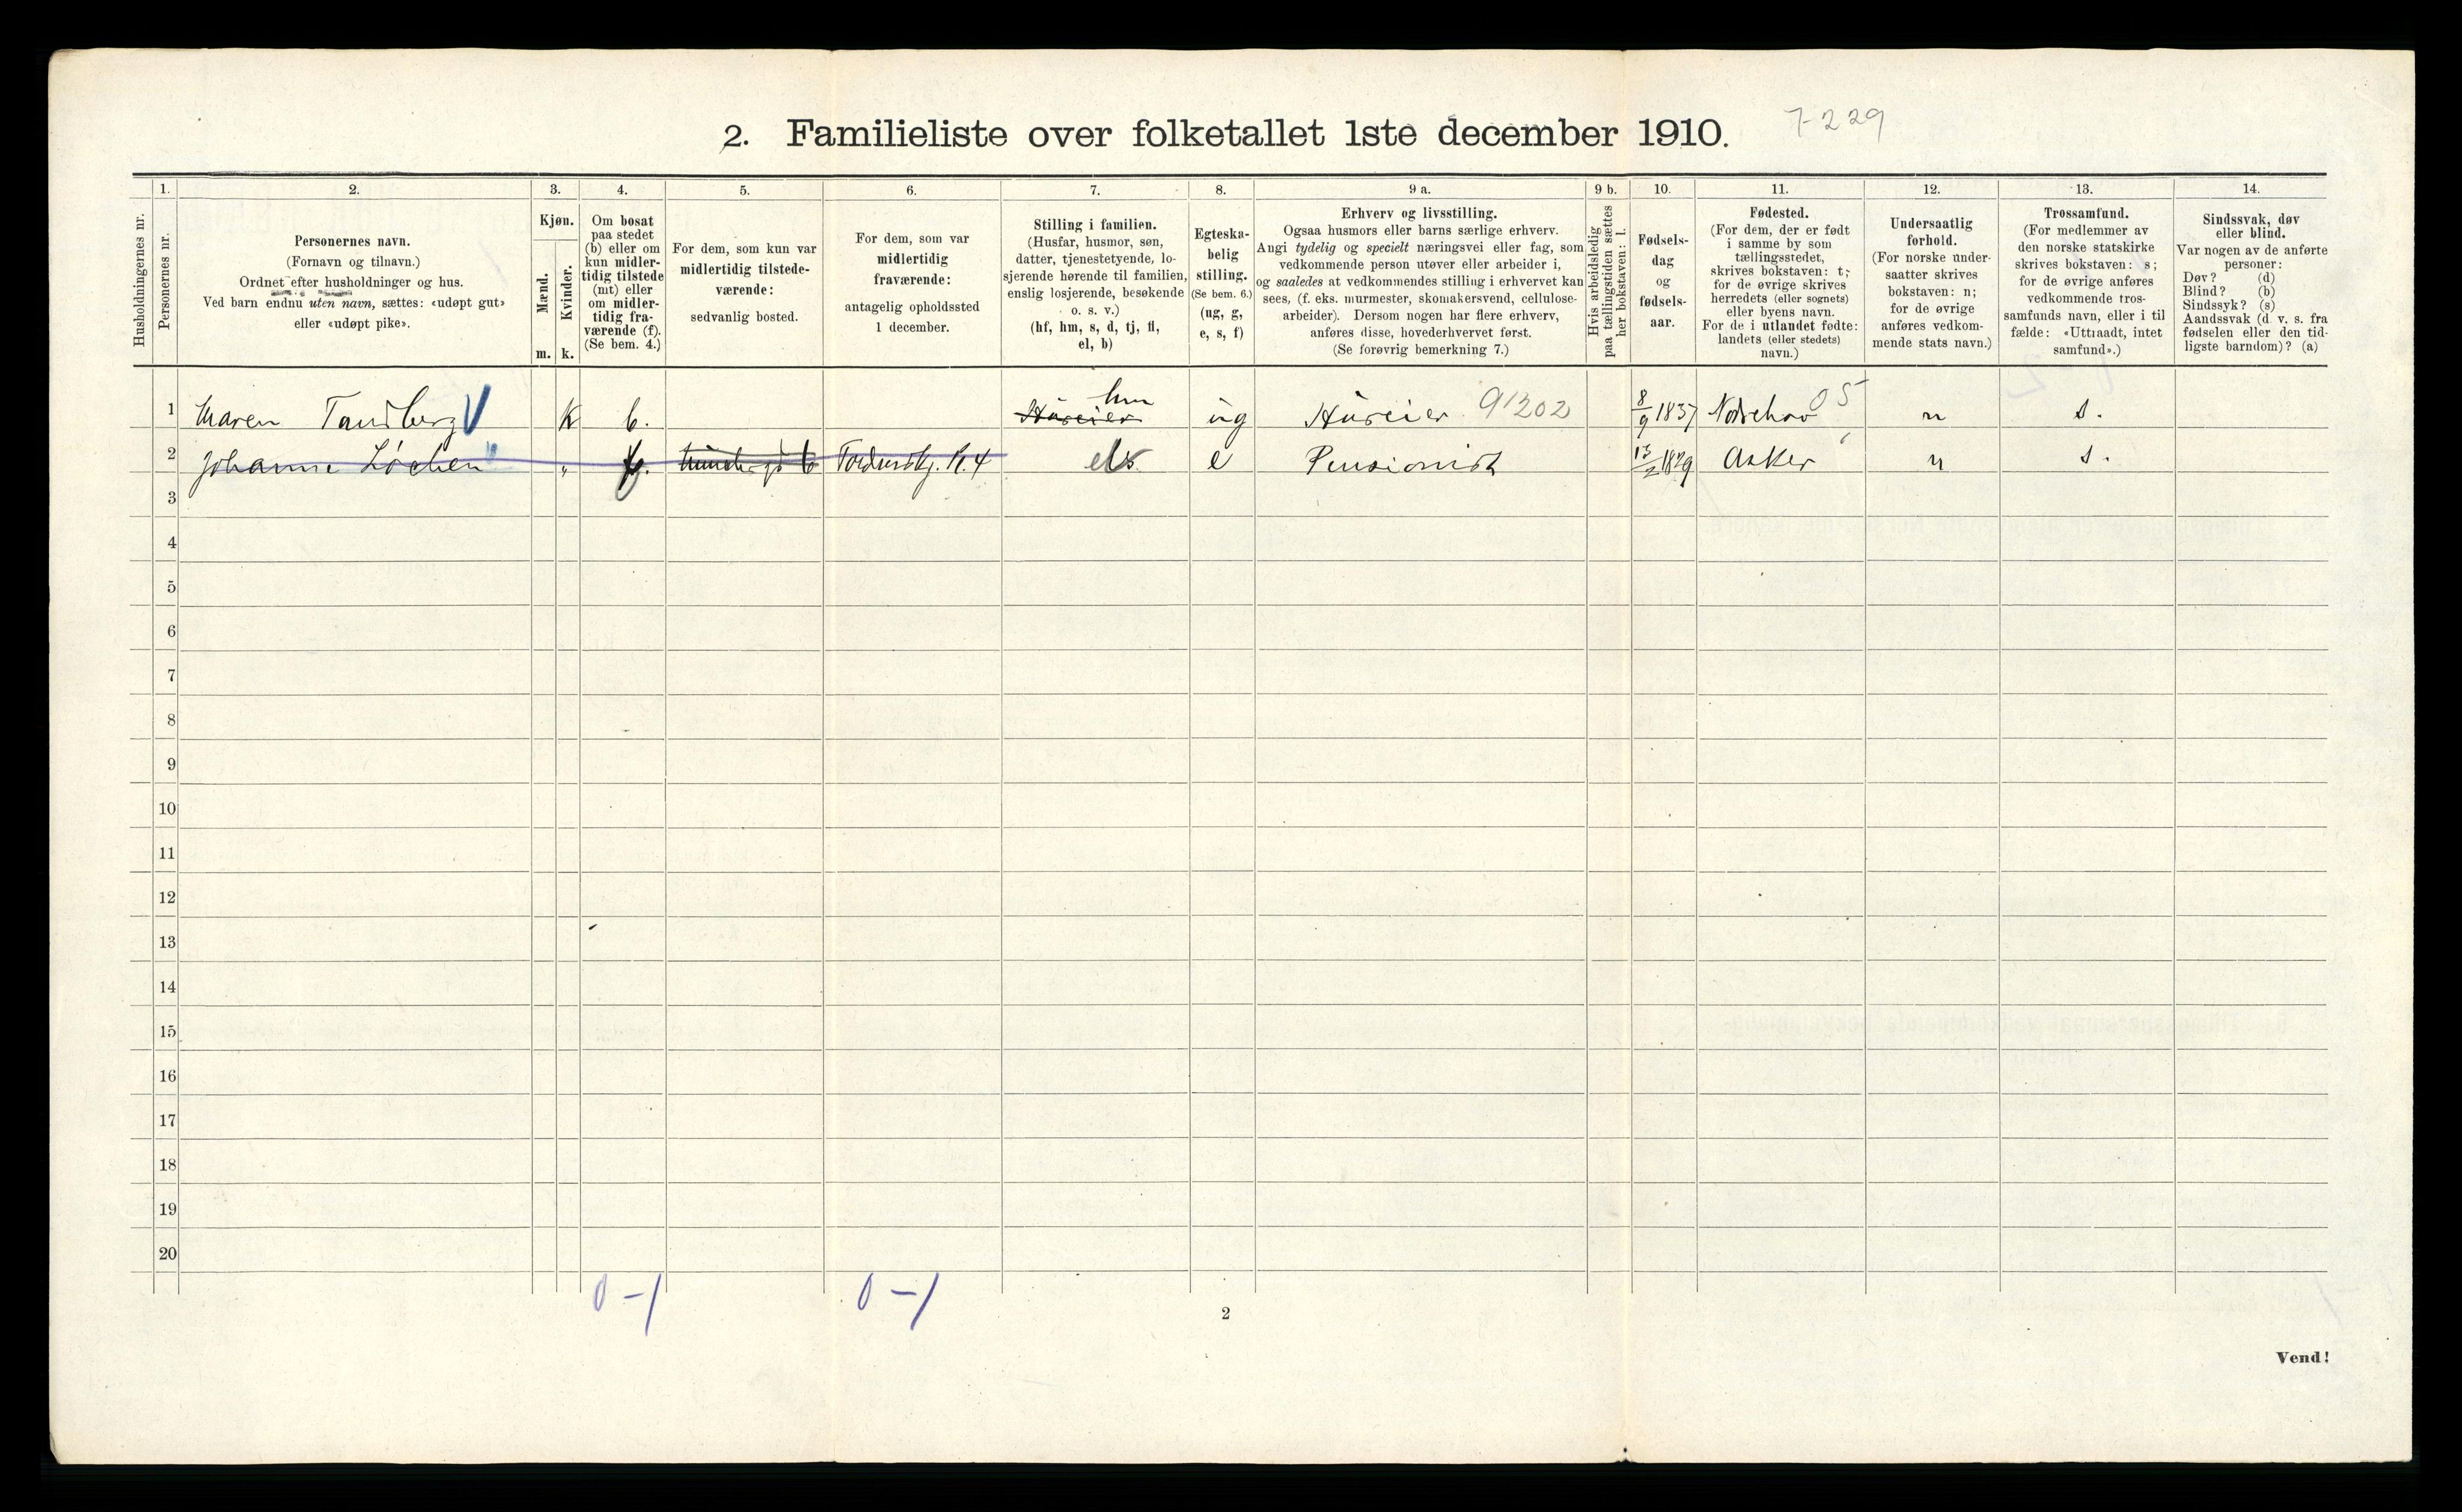 2. Familieliste over folketallet 1ste december 1910. 7-229
1. 2. 3. 4. 5. 6. 7. 8. 9 a. 9 b. 10. 11. 12. 13. 14.
Husholdningernes nr.
Personernes nr.
Personernes navn.
(Fornavn og tilnavn.)
Ordnet efter husholdninger og hus.
Ved barn endnu uten navn, sættes: «udøpt gut»
eller «udøpt pike».
Kjøn.
Mænd.
Kvinder.
m. k.
Om bosat
paa stedet
(b) eller om
kun midler-
tidig tilstede
(mt) eller
om midler-
tidig fra-
værende (f).
(Se bem. 4.)
For dem, som kun var
midlertidig tilstede-
værende:
sedvanlig bosted.
For dem, som var
midlertidig
fraværende:
antagelig opholdssted
1 december.
Stilling i familien.
(Husfar, husmor, søn,
datter, tjenestetyende, lo-
sjerende hørende til familien,
enslig losjerende, besøkende
o. s. v.)
(hf, hm, s, d, tj, fl,
el, b)
Egteska-
belig
stilling.
(Se bem. 6.)
(ug, g,
e, s, f)
Erhverv og livsstilling.
Ogsaa husmors eller barns særlige erhverv.
Angi tydelig og specielt næringsvei eller fag, som
vedkommende person utøver eller arbeider i,
og saaledes at vedkommendes stilling i erhvervet kan
sees, (f. eks. murmester, skomakersvend, cellulose-
arbeider). Dersom nogen har flere erhverv,
anføres disse, hovederhvervet først.
(Se forøvrig bemerkning 7.)
Hvis arbeidsledig
paa tællingstiden sættes
her bokstaven: l.
Fødsels-
dag
og
fødsels-
aar.
Fødested.
(For dem, der er født
i samme by som
tællingsstedet,
skrives bokstaven: t;
for de øvrige skrives
herredets (eller sognets)
eller byens navn.
For de i utlandet fødte:
landets (eller stedets)
navn.)
Undersaatlig
forhold.
(For norske under-
saatter skrives
bokstaven: n;
for de øvrige
anføres vedkom-
mende stats navn.)
Trossamfund.
(For medlemmer av
den norske statskirke
skrives bokstaven: s;
for de øvrige anføres
vedkommende tros-
samfunds navn, eller i til
fælde: «Uttraadt, intet
samfund».)
Sindssvak, døv
eller blind.
Var nogen av de anførte
personer:
Døv? (d)
Blind? (b)
Sindssyk? (s)
Aandssvak (d. v. s. fra
fødselen eller den tid-
ligste barndom)? (a)
1 Maren Tandberg K b. Huseier hm ug Huseier 91202 8/9 1837 Norderhov 05 n s.
2 Johanne Løchen " Tordensk.g. N. 4 el e Pensionist 13/2 1829 Asker n s.
3
4
5
6
7
8
9
10
11
12
13
14
15
16
17
18
19
20
0-1 0-1
2
Vend!